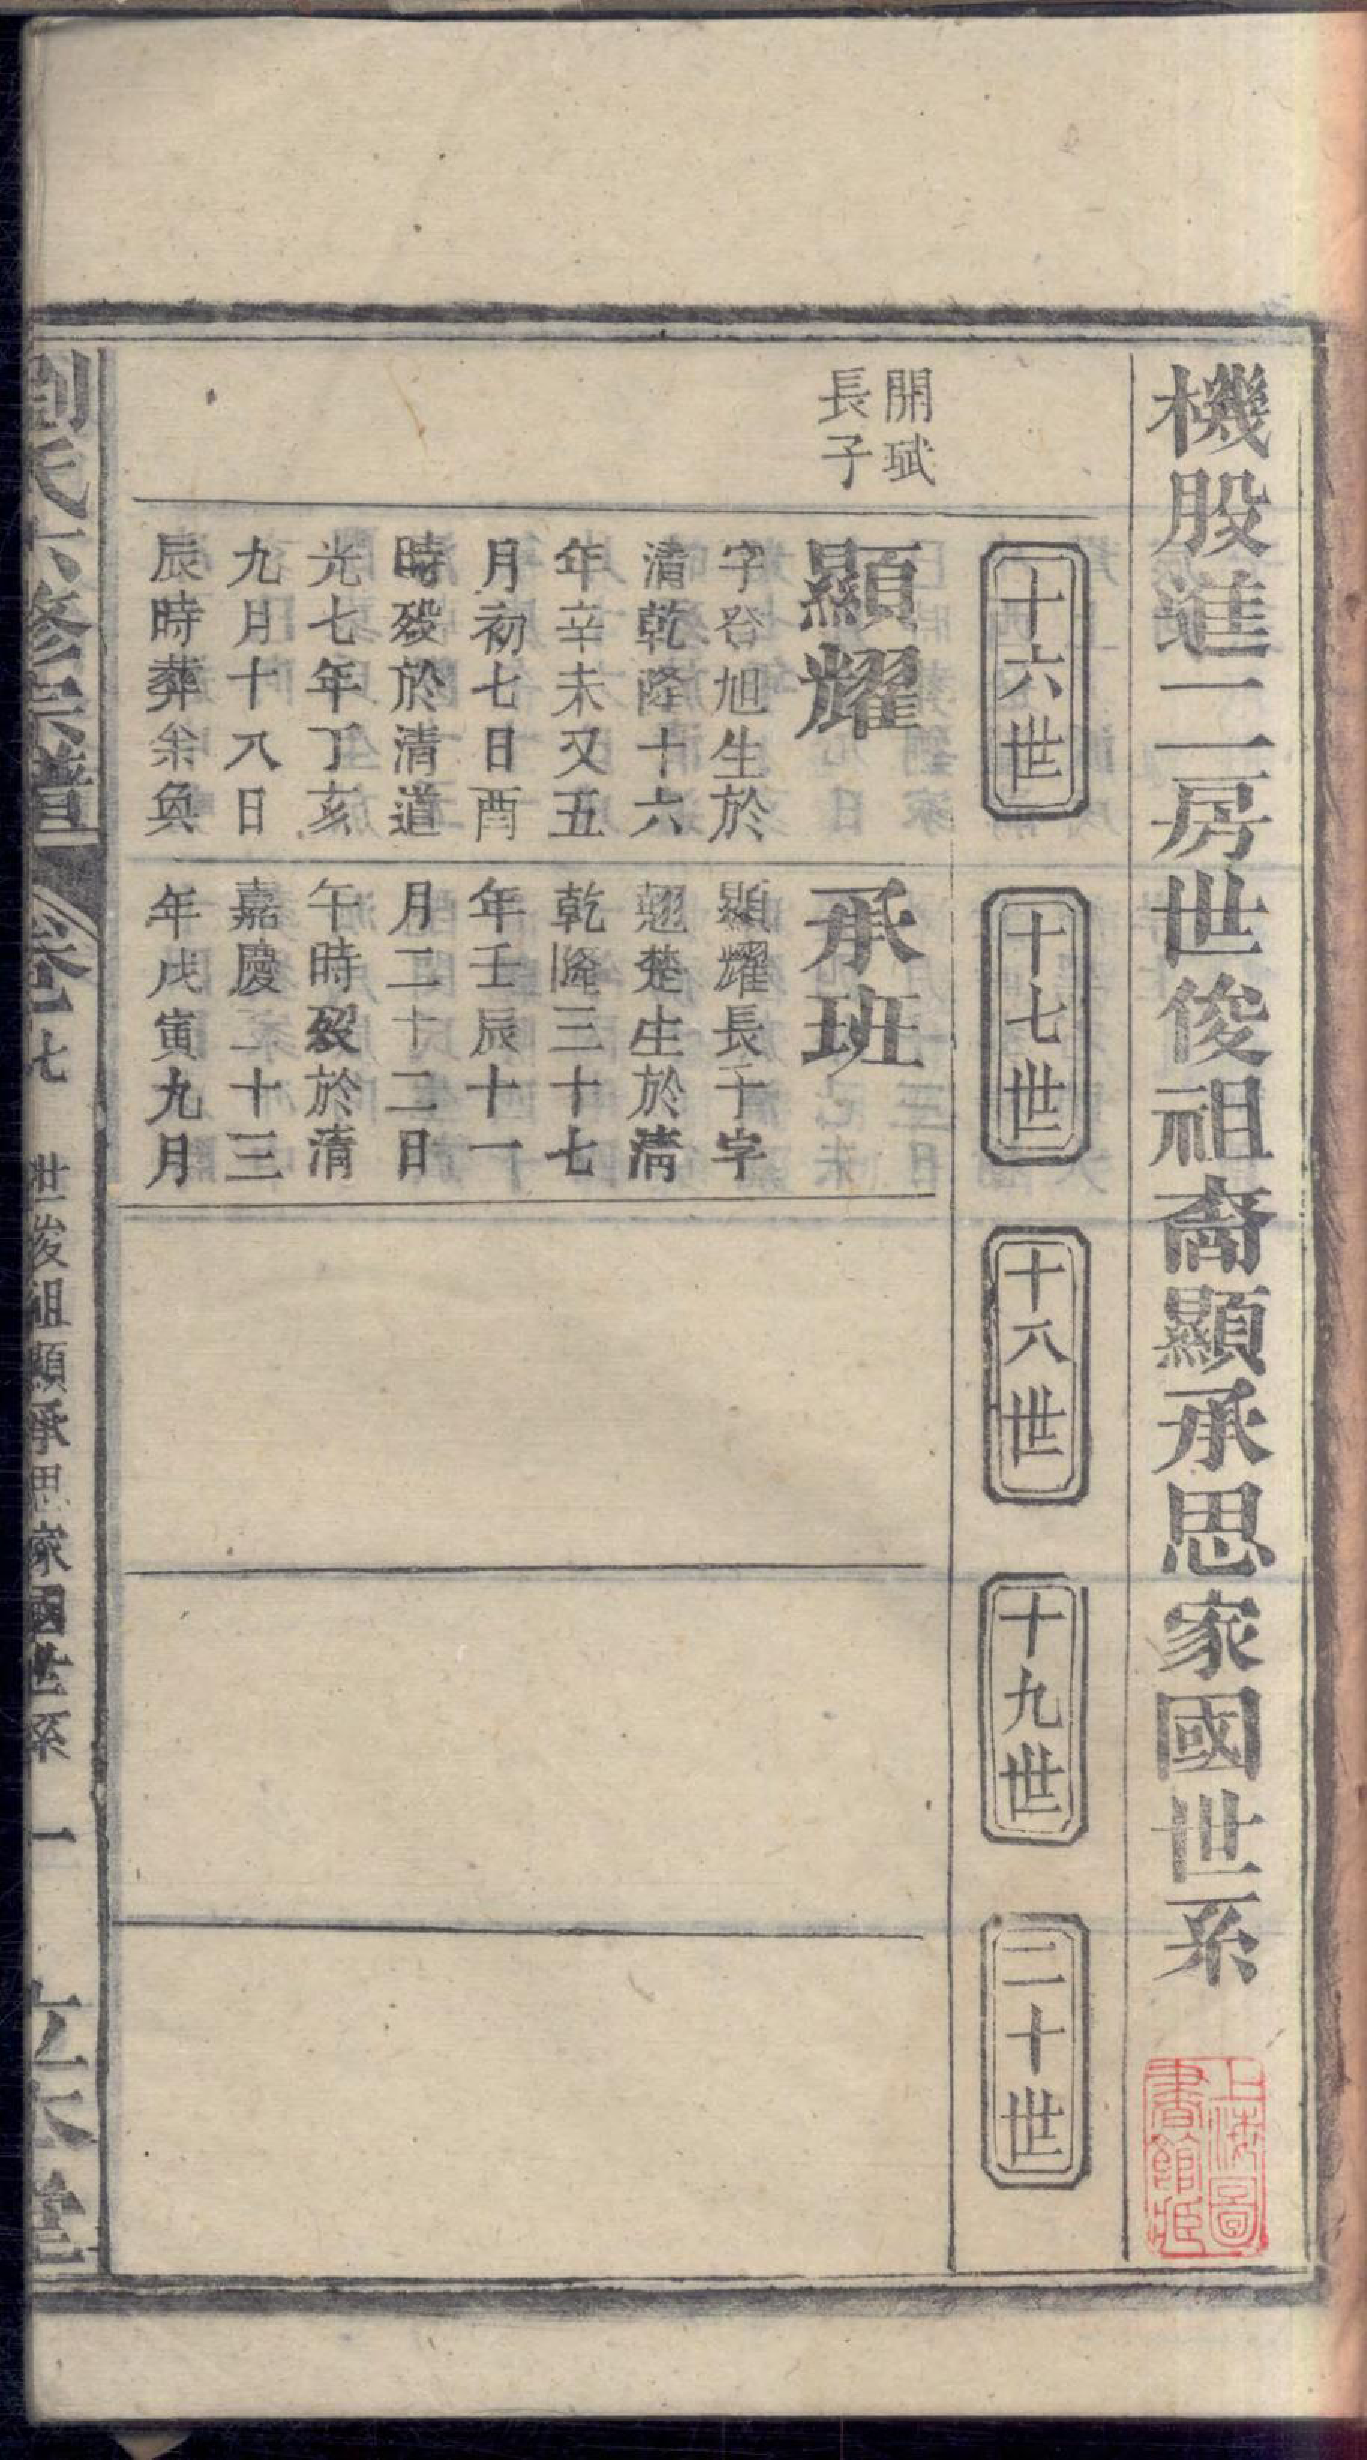 機股進二房世俊祖裔顯承思家國世系
上海圖
書館藏
十六世
十七世
十八世
十九世
二十世
開珷
長子
顯耀
字谷旭生於
清乾隆十六
年辛未又五
月初七日酉
時歿於清道
光七年丁亥
九月十八日
辰時葬余奐
承班
顯耀長子字
翹楚生於清
乾隆三十七
年壬辰十一
月二十二日
午時歿於清
嘉慶二十三
年戊寅九月
劉氏六修宗譜
卷七
世俊祖顯承思家國世系
一
立本堂